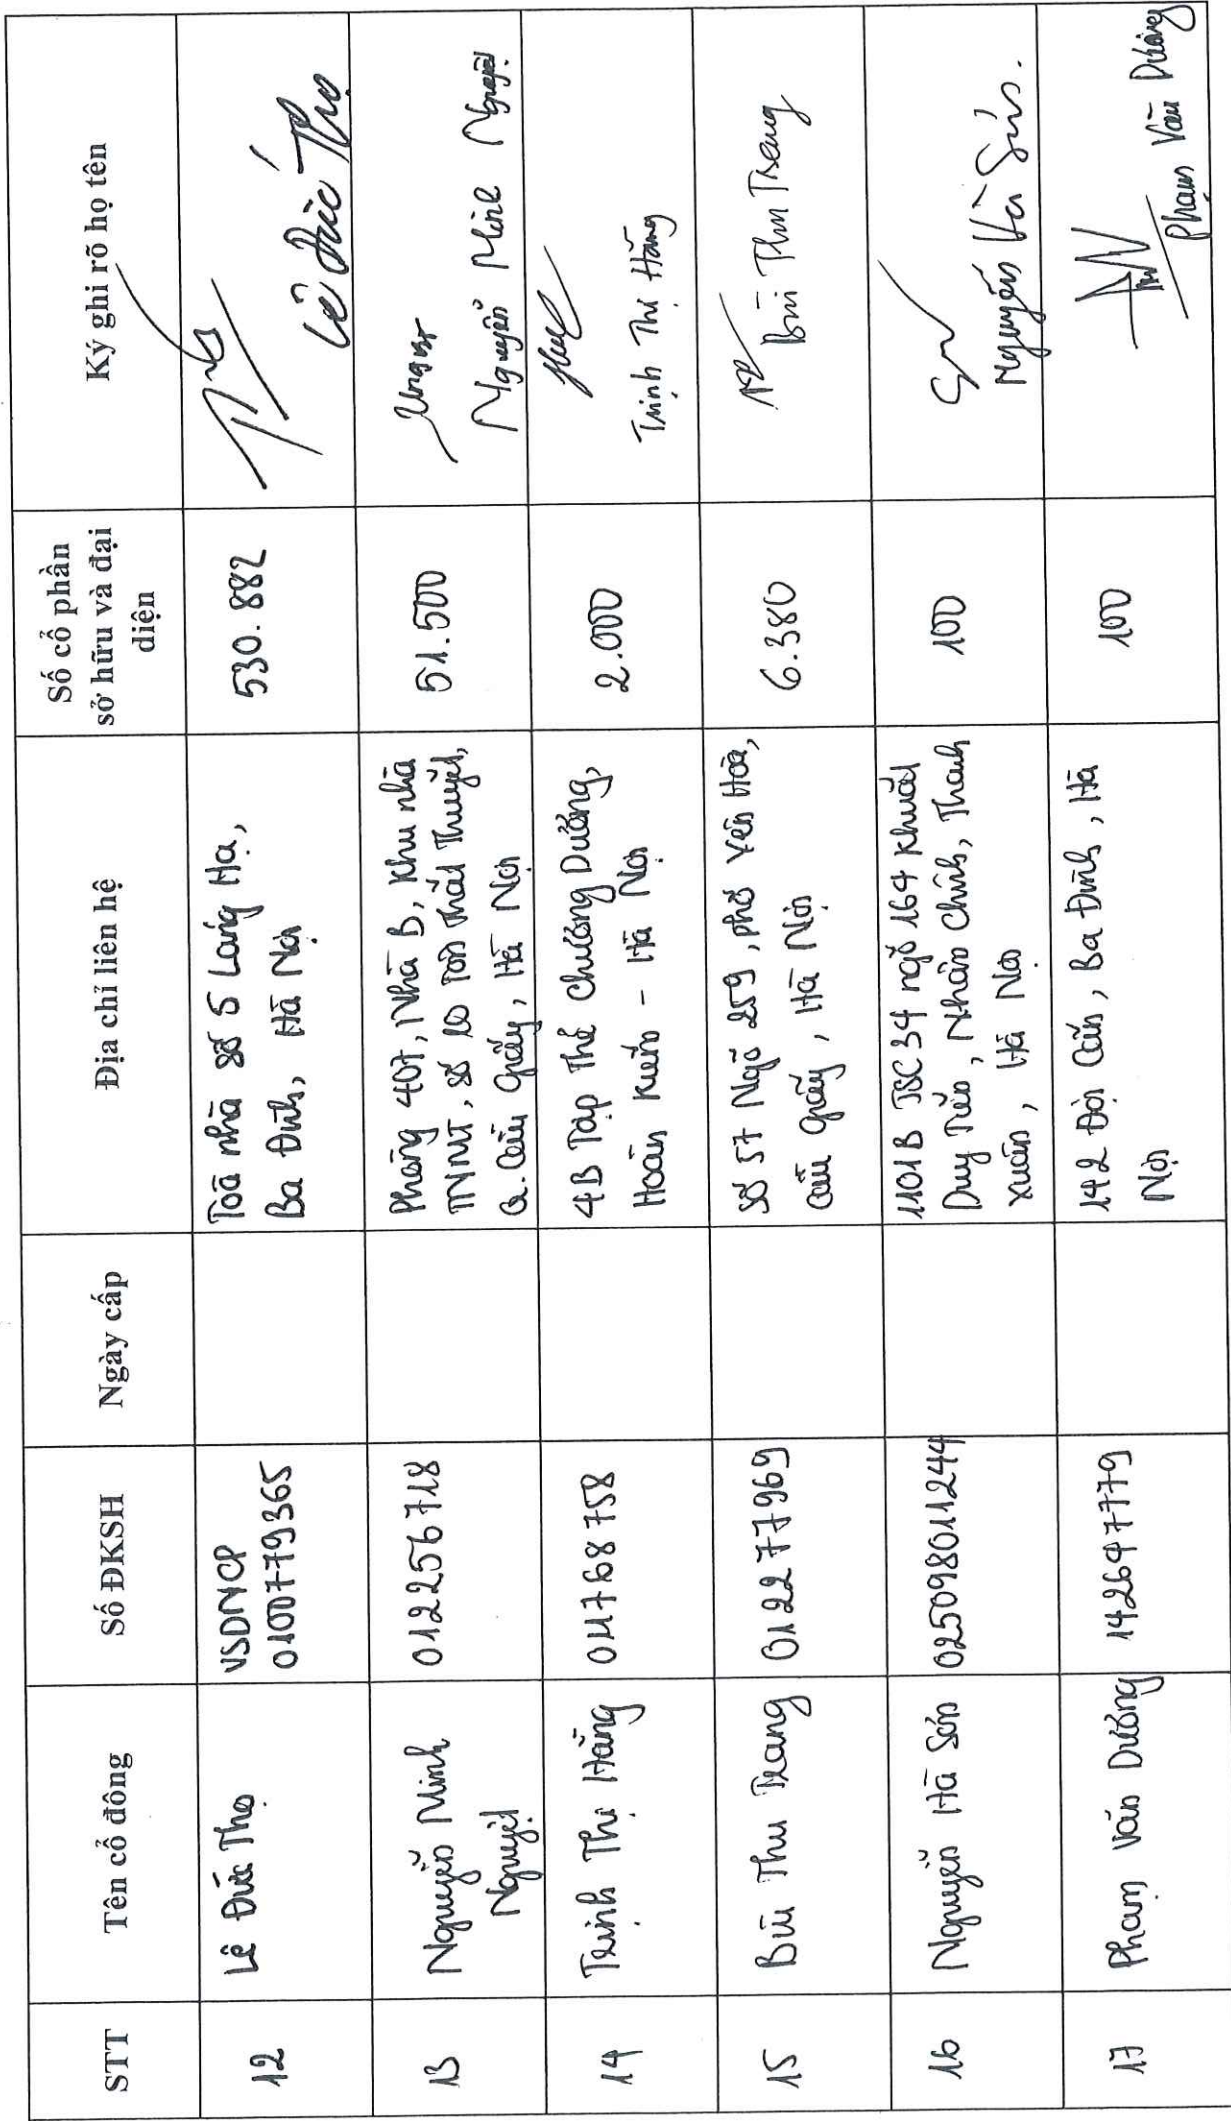 STT
Tên cổ đông
Số ĐKSH
Ngày cấp
Địa chỉ liên hệ
Số cổ phần
sở hữu và đại
diện
Ký ghi rõ họ tên
12
Lê Đức Thọ
VSDNCP
0100779365
Toà nhà số 5 Láng Hạ,
Ba Đình, Hà Nội
530.882
Lê Đức Thọ
13
Nguyễn Minh
Nguyệt
012256718
Phòng 407, Nhà B, Khu nhà
TNMT, số 10 Tôn Thất Thuyết,
Q. Cầu Giấy, Hà Nội
51.500
Nguyễn Minh Nguyệt
14
Trịnh Thị Hằng
011768758
4B Tập Thể Chương Dương,
Hoàn Kiếm - Hà Nội
2.000
Trịnh Thị Hằng
15
Bùi Thu Trang
012277969
Số 57 Ngõ 259, phố Yên Hoà,
Cầu Giấy, Hà Nội
6.380
Bùi Thu Trang
16
Nguyễn Hà Sơn
025098011244
1101B JSC 34 ngõ 164 Khuất
Duy Tiến, Nhân Chính, Thanh
Xuân, Hà Nội
100
Nguyễn Hà Sơn.
17
Phạm Văn Dương
142647779
142 Đội Cấn, Ba Đình, Hà
Nội
100
Phạm Văn Dương